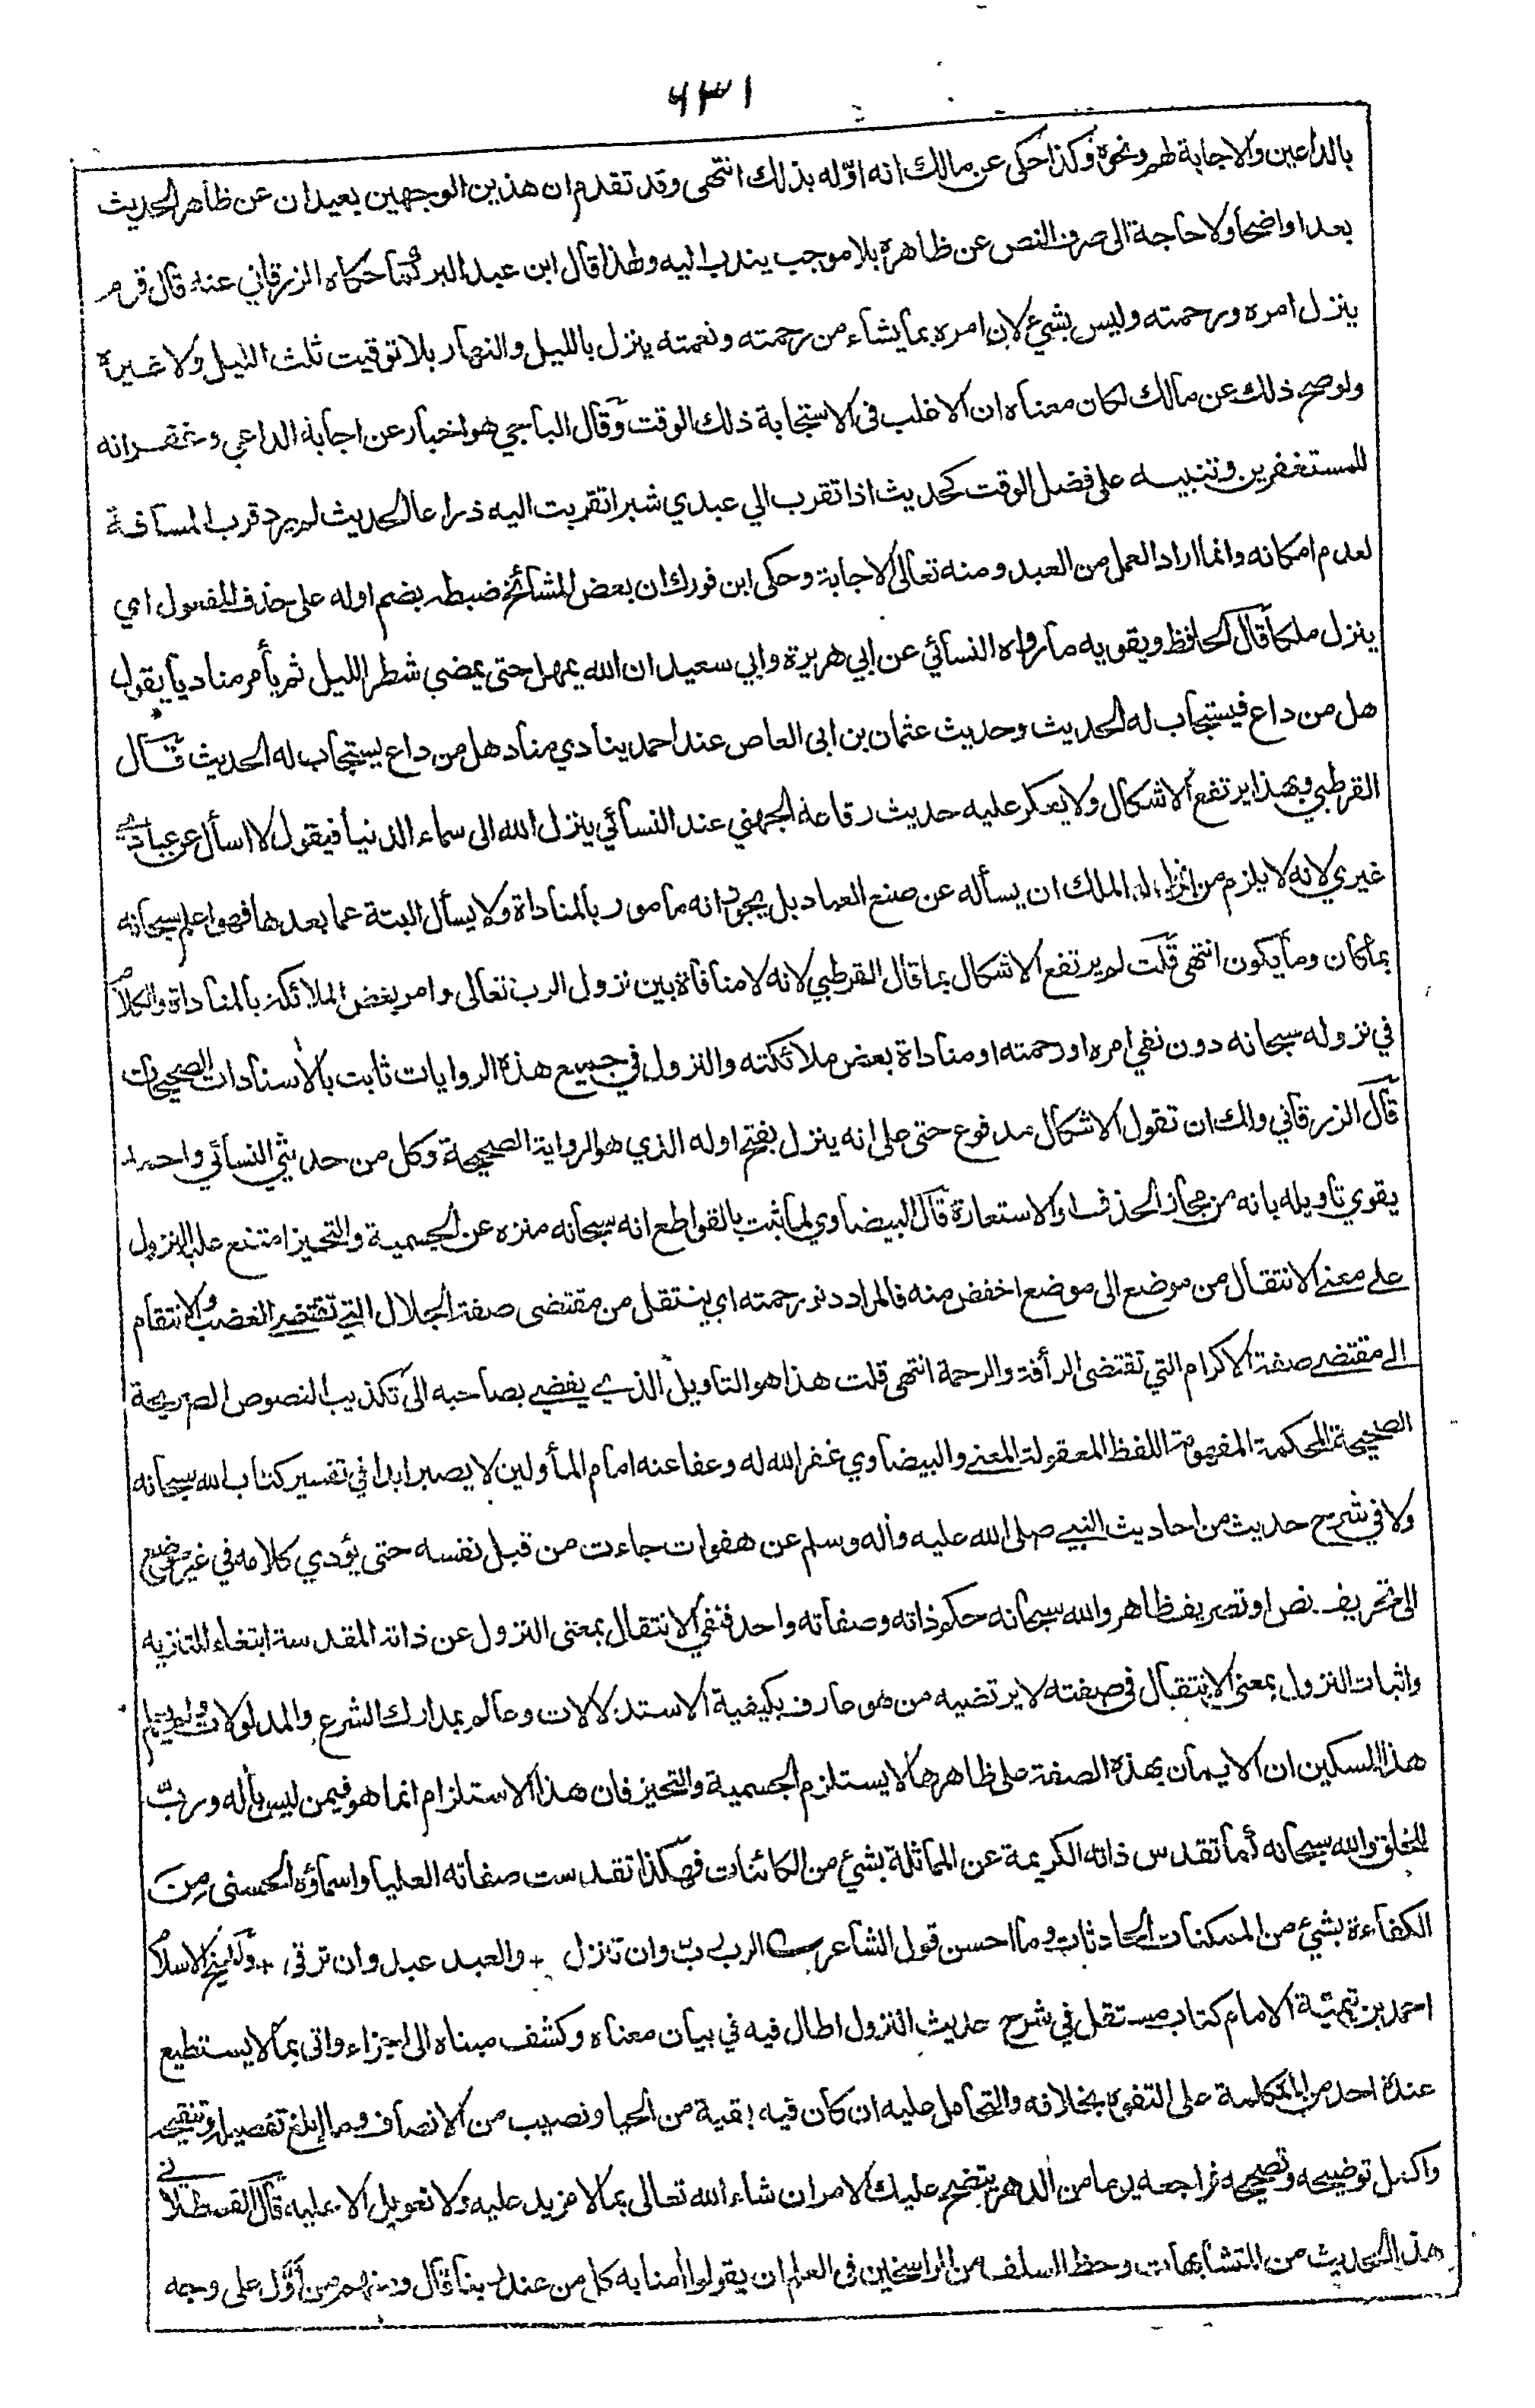 ٦٣١
بالداعين والاجابة لهم ونحوه وكذا حكى عن مالك انه اوّله بذلك انتهى وقد تقدم ان هذين الوجهين بعيدان عن ظاهر الحديث
بعدا واضحا ولا حاجة الى صرف النص عن ظاهره بلا موجب يندب اليه ولهذا قال ابن عبد البر كما حكاه الزرقاني عنه قال قوم
ينزل امره ورحمته وليس بشيء لان امره بما يشاء من رحمته ونعمته ينزل بالليل والنهار بلا توقيت ثلث الليل ولا غيره
ولو صح ذلك عن مالك لكان معناه ان الاغلب في الاستجابة ذلك الوقت وقال الباجي هو اخبار عن اجابة الداعي وغفرانه
للمستغفرين وتنبيه على فضل الوقت كحديث اذا تقرب الي عبدي شبرا تقربت اليه ذراعا الحديث لم يرد قرب المسافة
لعدم امكانه وانما اراد العمل من العبد ومنه تعالى الاجابة وحكى ابن فورك ان بعض المشائخ ضبطه بضم اوله على حذف المفعول اي
ينزل ملكا قال الحافظ ويقويه ما رواه النسائي عن ابي هريرة وابي سعيد ان الله يمهل حتى يمضي شطر الليل ثم يأمر مناديا يقول
هل من داع فيستجاب له الحديث وحديث عثمان بن ابى العاص عند احمد ينادي مناد هل من داع يستجاب له الحديث قال
القرطبي وبهذا يرتفع الاشكال ولا يعكر عليه حديث رفاعة الجهني عند النسائي ينزل الله الى سماء الدنيا فيقول لا اسأل عن عبادي
غيري لانه لا يلزم من انزاله الملك ان يسأله عن صنع العباد بل يجوز انه مامور بالمناداة ولا يسأل البتة عما بعدها فهو اعلم سبحانه
بما كان وما يكون انتهى قلت لم يرتفع الاشكال بما قال القرطبي لانه لا منافاة بين نزول الرب تعالى وامر بعض الملائكة بالمناداة والكلام
في نزوله سبحانه دون نفي امره او رحمته او مناداة بعض ملائكته والنزول في جميع هذه الروايات ثابت بالاسنادات الصحيحات
قال الزرقاني ولك ان تقول الاشكال مدفوع حتى على انه ينزل بفتح اوله الذي هو الرواية الصحيحة وكل من حديثي النسائي واحمد
يقوي تاويله بانه من مجاز الحذف او الاستعارة قال البيضاوي لما ثبت بالقواطع انه سبحانه منزه عن الجسمية والتحيز امتنع عليه النزول
على معنى الانتقال من موضع الى موضع اخفض منه فالمراد دنو رحمته اي ينتقل من مقتضى صفة الجلال التي تقتضي الغضب والانتقام
الى مقتضى صفة الاكرام التي تقتضى الرأفة والرحمة انتهى قلت هذا هو التاويل الذي يفضي بصاحبه الى تكذيب النصوص الصريحة
الصحيحة المحكمة المفهومة اللفظ المعقولة المعنى والبيضاوي غفر الله له وعفا عنه امام المأولين لا يصبر ابدا في تفسير كتاب الله سبحانه
ولا في شرح حديث من احاديث النبي صلى الله عليه واله وسلم عن هفوات جاءت من قبل نفسه حتى يؤدي كلامه في غير موضع
الى تحريف نص او تصريف ظاهر والله سبحانه حكم ذاته وصفاته واحد فنفي الانتقال بمعنى النزول عن ذاته المقدسة ابتغاء للتنزيه
واثبات النزول بمعنى الانتقال في صفته لا يرتضيه من هو عارف بكيفية الاستدلالات وعالم بمدارك الشرع والمدلولات ولم يعلم
هذا المسكين ان الايمان بهذه الصفة على ظاهرها لا يستلزم الجسمية والتحيز فان هذا الاستلزام انما هو فيمن ليس بأله ورب
للخلق والله سبحانه كما تقدس ذاته الكريمة عن المماثلة بشيء من الكائنات فهكذا تقدست صفاته العليا واسماؤه الحسنى من
الكفاءة بشيء من الممكنات الحادثات وما احسن قول الشاعر الرب رب وان تنزل + والعبد عبد وان ترقى + ولشيخ الاسلام
احمد بن تيمية الامام كتاب مستقل في شرح حديث النزول اطال فيه في بيان معناه وكشف مبناه الى اجزاء واتى بما لا يستطيع
عنده احد من المتكلمة على التفوه بخلافه والتحامل عليه ان كان فيه بقية من الحيا ونصيب من الانصاف وما ابلغ تفصيله وتنقيحه
واكمل توضيحه وتصحيحه فراجعه يوما من الدهر يتضح عليك الامر ان شاء الله تعالى بما لا مزيد عليه ولا تعويل الا عليه قال القسطلاني
هذا الحديث من المتشابهات وحظ السلف من الراسخين في العلم ان يقولوا أمنا به كل من عند ربنا قال ومنهم من أوّل على وجه